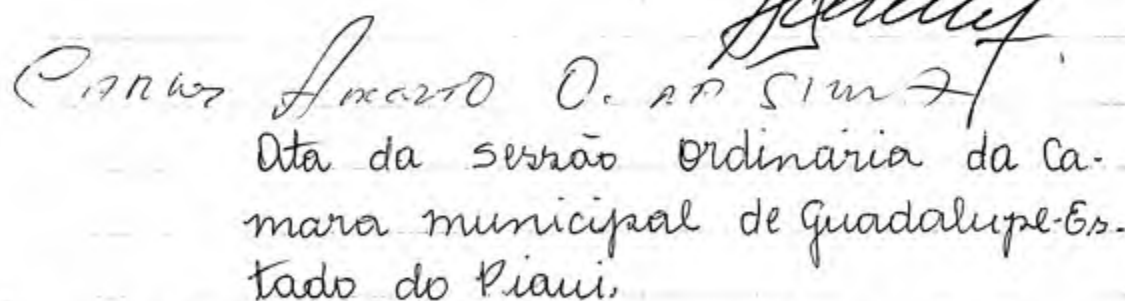 Carlos O. da Silva
Ata da sessão ordinária da Ca-
mara municipal de Guadalupe-Es-
tado do Piaui.